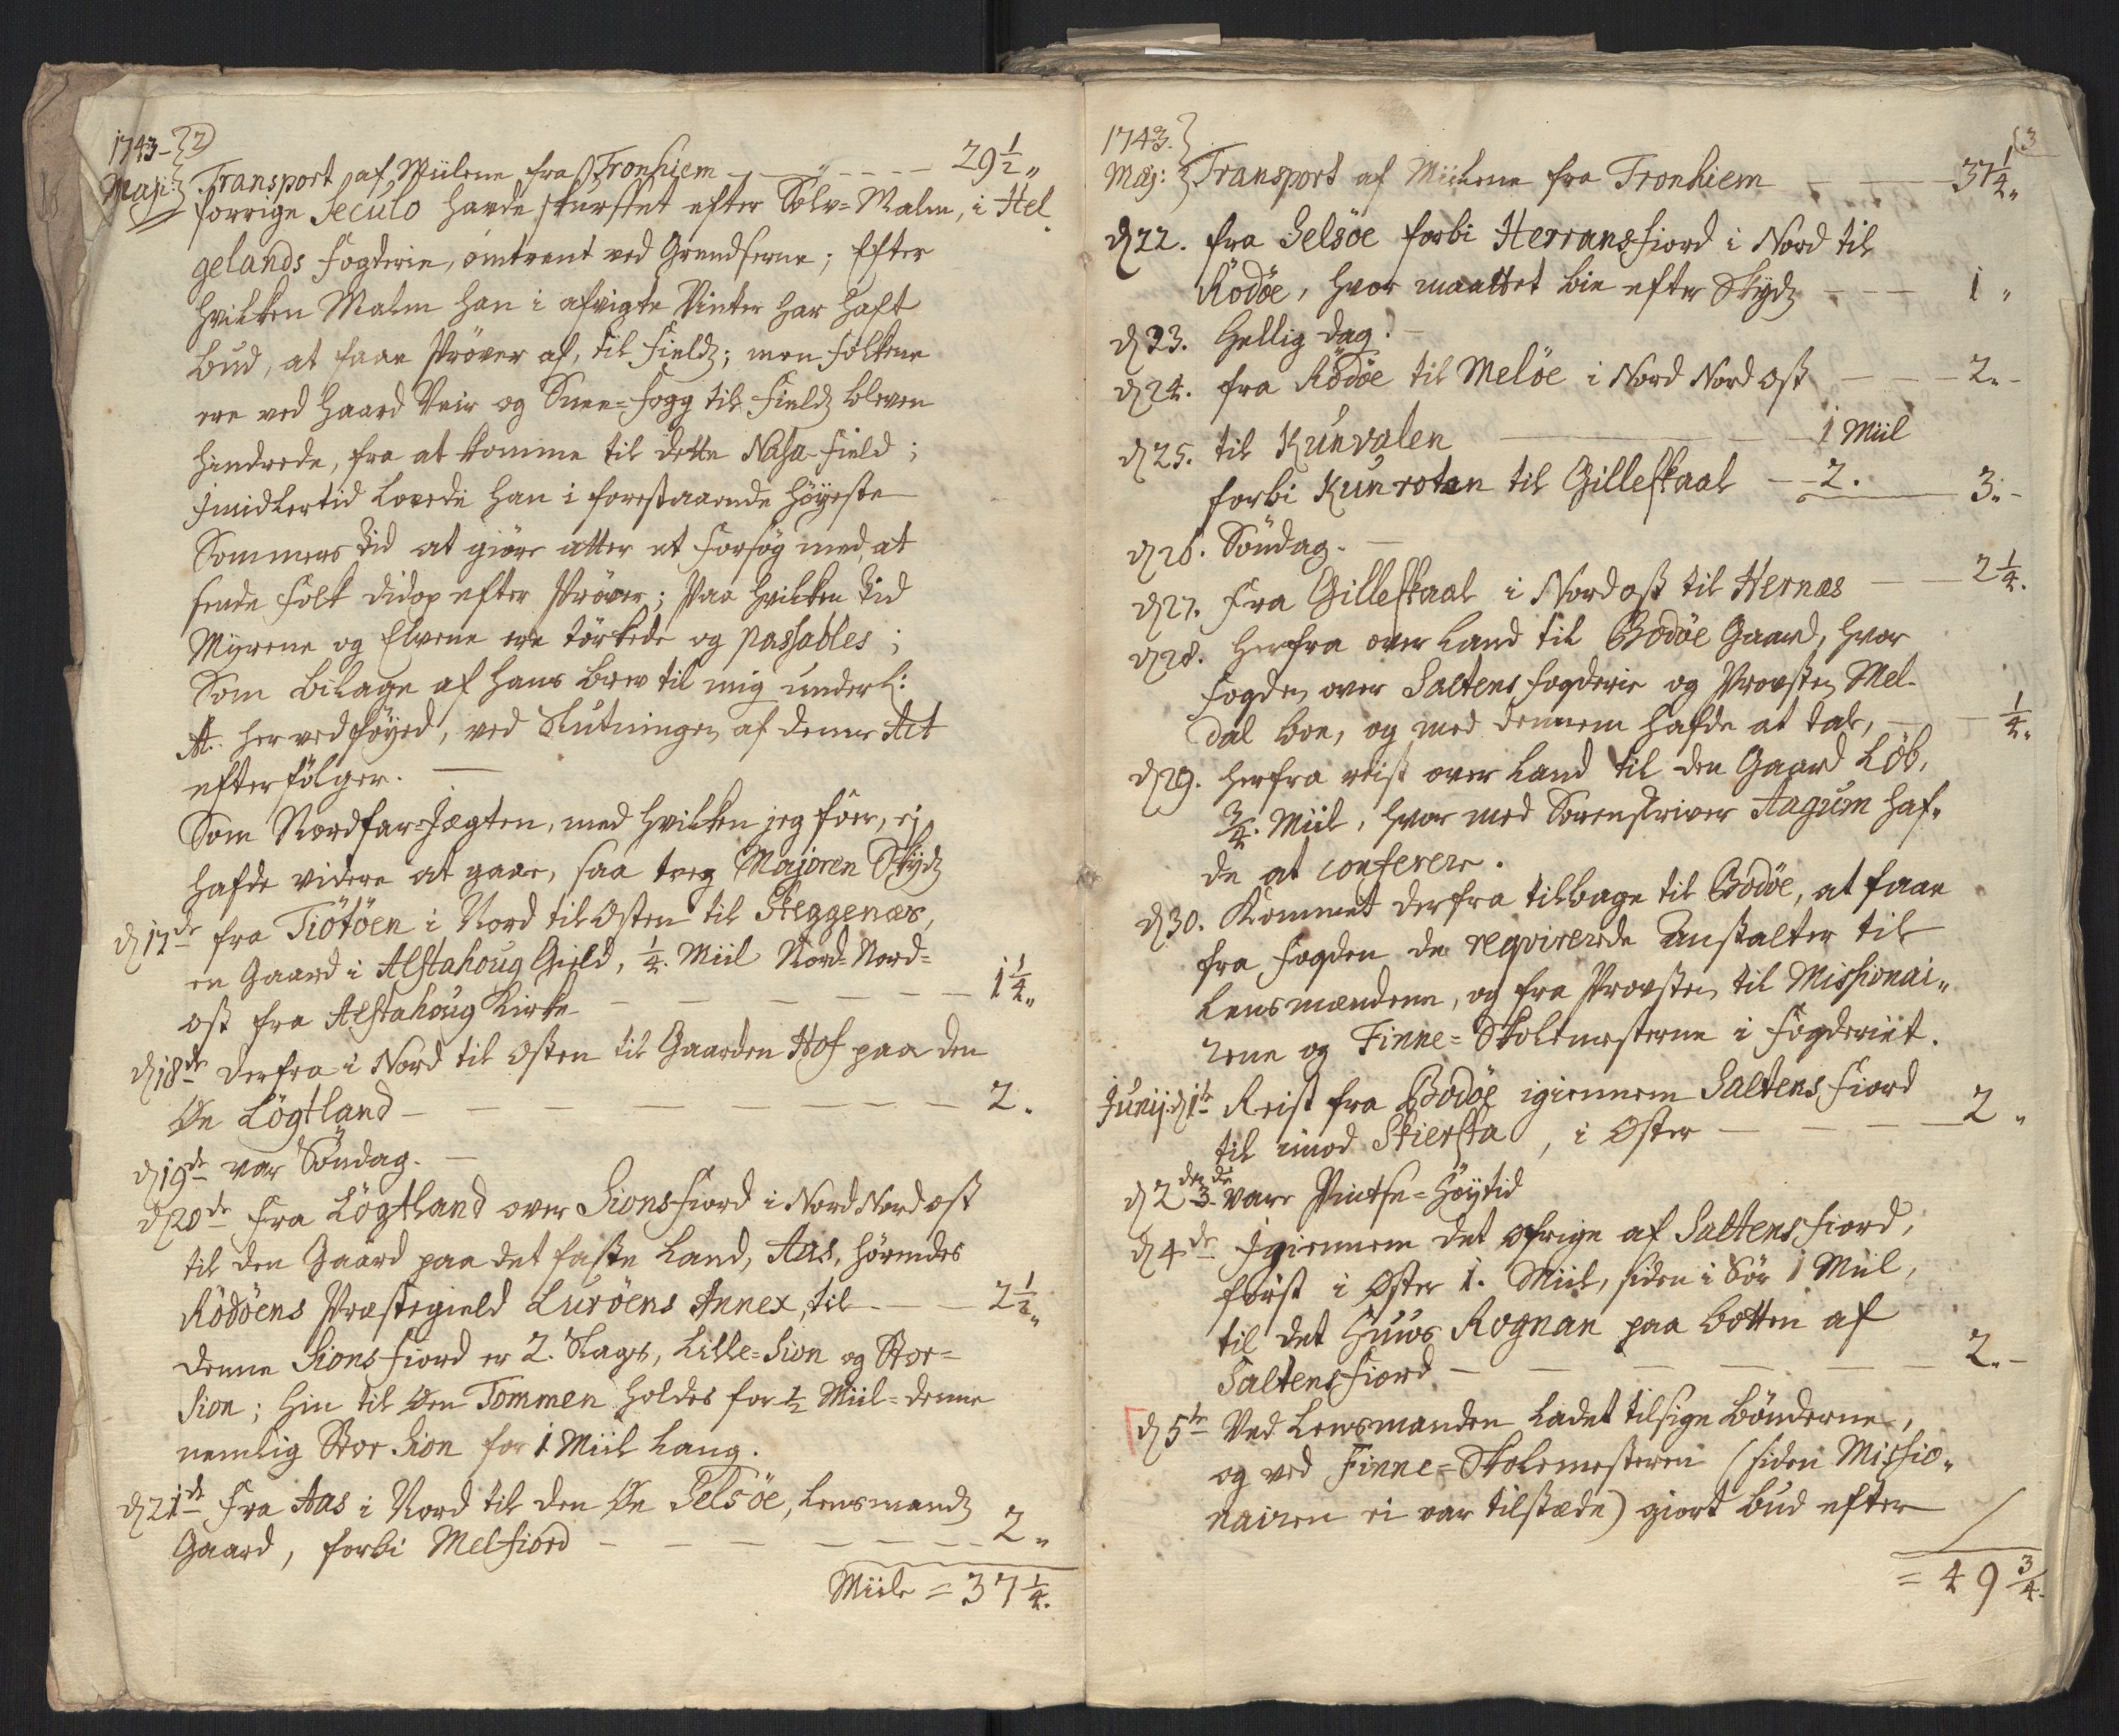 1743. 2)
Maji: Transport af Miilene fra Tronhiem - - - 29 1/2 "
forrige Seculo havde skurffet efter Sølv-Malm, i Hel
gelands Fogderie, omtrent ved Grendserne; Efter
hvilken Malm han i afvigte Vinter har haft
bud, at faae Prøver af, til Fields; men folkene
ere ved haard Veir og Snee-fogg til Fields bleven
hindrede, fra at komme til dette Nasa-Field;
Imidlertid lovede han i forestaaende høyeste
Sommers tid at giøre atter et forsøg med, at
sende folk didop efter Prøver; Paa hvilken tid
Myrene og Elvene ere tørkede og passables;
Som bilage af hans brev til mig under L:
A. her vedføyed, ved Slutningen af denne Act
efterfølger. —
Som Nordfar-Jægten, med hvilken jeg foer, ej
hafde videre at gaae, saa tog Majoren Skyds
d 17de fra Tiötöen i Nord til Osten til Steggenæs,
en Gaard i Alstahoug Gield, 1/4. Miil Nord-Nord-
ost fra Alstahoug Kirke - - - 1 1/4 "
d 18de Derfra i Nord til Osten til Gaarden Hof paa den
Øe Lögtland - - - 2.
d 19de var Søndag. —
d 20de Fra Lögtland over Sionsfiord i Nord Nordost
til den Gaard paa det faste Land, Aas, hørendes
Rödöens Præstegield Luröens Annex, til - - 2 1/2 "
Denne Sionsfiord er 2. Slags, Lille-Sion og Stor-
Sion; hin til Øen Tommen holdes for 1/2 Miil- denne
nemlig Stor Sion for 1 Miil lang.
d 21de Fra Aas i Nord til den Øe Selsöe, Lensmands
Gaard, forbi Melfiord - - - 2 "
Miile = 37 1/4.
1743. 3
Maj: Transport af Miilene fra Tronhiem - - - 37 1/4 "
d 22. fra Selsöe forbi Herransfiord i Nord til
Rödöe, hvor maattet bie efter Skyds - - - 1 "
d 23. Hellig dag. -
d 24. fra Rödöe til Melöe i Nord Nordost - - - 2 " -
d 25. til Kunvalen - - - 1 Miil
forbi Kunrotan til Gilleskaal - - 2. - 3. -
d 26. Söndag. -
d 27. Fra Gilleskaal i Nordost til Hernæs - - 2 1/4.
d 28. Herfra over Land til Bodöe Gaard, hvor
Fogden over Saltens Fogderie og Provsten Mel-
dal boe, og med dennem hafde at tale, - - 1/4 "
d 29. herfra reist over Land til den Gaard Löb,
3/4. Miil, hvor med Sorenskriver Aagum haf-
de at conferere.
d 30. Kommet derfra tilbage til Bodöe, at faae
fra Fogden de reqvirerede Anstalter til
Lensmændene, og fra Provsten til Missionai-
rene og Finne-Skolemesterne i Fogderiet.
Junij: d 1te Reist fra Bodöe igiennem Saltens Fiord
til imod Skiersta, i Oster - - - 2 "
d 2den 3de vare Pintse-Høytid
d 4de Igiennem det øfrige af Saltens Fiord,
først i Oster 1. Miil, siden i Sör 1 Miil,
til det Huus Rognan paa botten af
Saltens fiord - - - 2. -
d 5te Ved Lensmanden ladet tilsige bönderne,
og ved Finne-Skolemesteren (siden Missio-
nairen ei var tilstæde) giort bud efter
= 49 3/4.